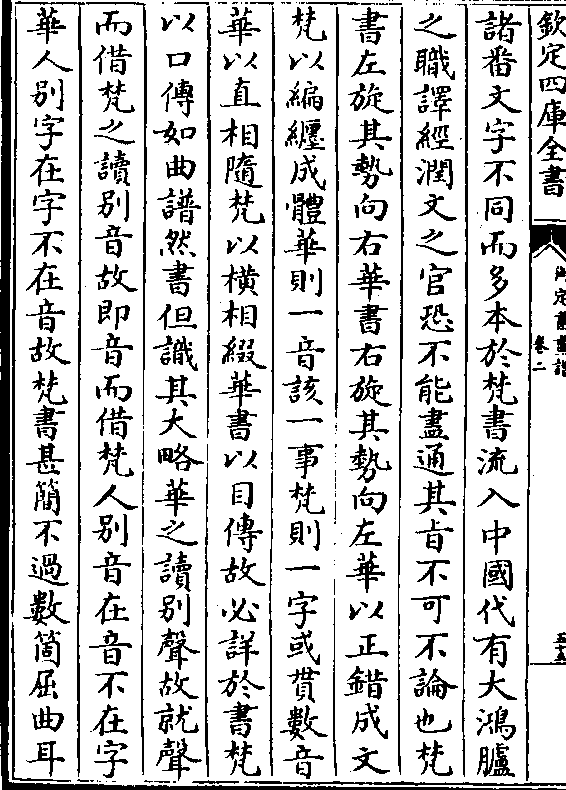 欽定四庫全書
御定書畫譜
卷二
諸番文字不同而多本於梵書流入中國代有大鴻臚
之職譯經潤文之官恐不能盡通其旨不可不論也梵
書左旋其勢向右華書右旋其勢向左華以正錯成文
梵以編纏成體華則一音該一事梵則一字或貫數音
華以直相隨梵以橫相綴華書以目傳故必詳於書梵
以口傳如曲譜然書但識其大略華之讀別聲故就聲
而借梵之讀別音故即音而借梵人別音在音不在字
華人別字在字不在音故梵書甚簡不過數箇屈曲耳